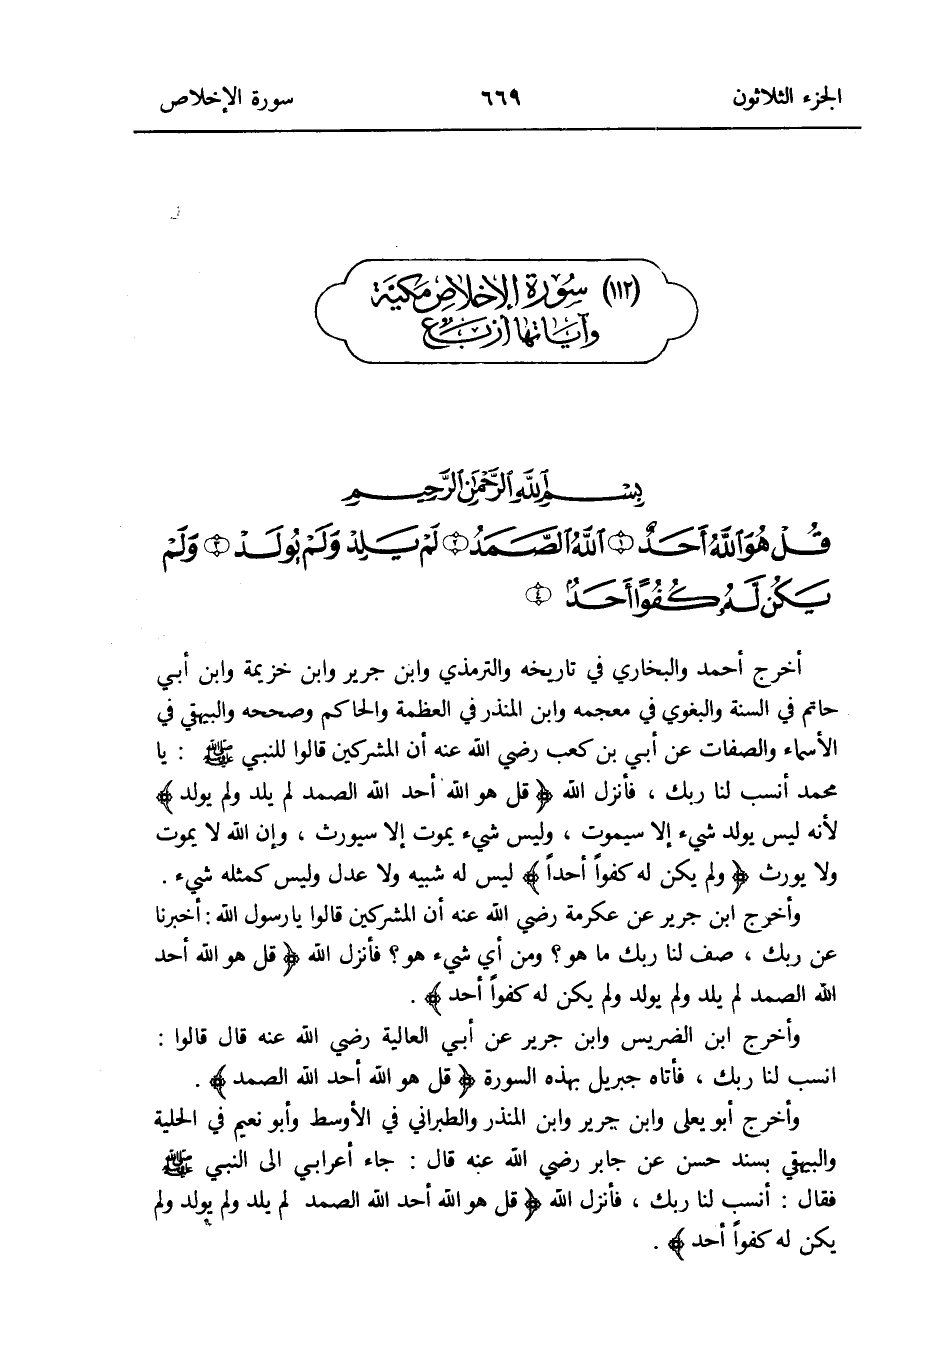 الجزء الثلاثون ٦٦٩ سورة الإخلاص
(١١٢) سُورَة الإخلاص مَكيَّة
وآيَاتها أرْبَع
بِسْمِ ٱللَّهِ ٱلرَّحْمَٰنِ ٱلرَّحِيمِ
قُلْ هُوَ ٱللَّهُ أَحَدٌ ۝١ ٱللَّهُ ٱلصَّمَدُ ۝٢ لَمْ يَلِدْ وَلَمْ يُولَدْ ۝٣ وَلَمْ
يَكُن لَّهُۥ كُفُوًا أَحَدٌۢ ۝٤
أخرج أحمد والبخاري في تاريخه والترمذي وابن جرير وابن خزيمة وابن أبي
حاتم في السنة والبغوي في معجمه وابن المنذر في العظمة والحاكم وصححه والبيهقي في
الأسماء والصفات عن أبي بن كعب رضي الله عنه أن المشركين قالوا للنبي ﷺ : يا
محمد أنسب لنا ربك ، فأنزل الله ﴿ قل هو الله أحد الله الصمد لم يلد ولم يولد ﴾
لأنه ليس يولد شيء إلا سيموت ، وليس شيء يموت إلا سيورث ، وإن الله لا يموت
ولا يورث ﴿ ولم يكن له كفواً أحداً ﴾ ليس له شبيه ولا عدل وليس كمثله شيء .
وأخرج ابن جرير عن عكرمة رضي الله عنه أن المشركين قالوا يارسول الله : أخبرنا
عن ربك ، صف لنا ربك ما هو؟ ومن أي شيء هو؟ فأنزل الله ﴿ قل هو الله أحد
الله الصمد لم يلد ولم يولد ولم يكن له كفواً أحد ﴾ .
وأخرج ابن الضريس وابن جرير عن أبي العالية رضي الله عنه قال قالوا :
انسب لنا ربك ، فأتاه جبريل بهذه السورة ﴿ قل هو الله أحد الله الصمد ﴾ .
وأخرج أبو يعلى وابن جرير وابن المنذر والطبراني في الأوسط وأبو نعيم في الحلية
والبيهقي بسند حسن عن جابر رضي الله عنه قال : جاء أعرابي الى النبي ﷺ
فقال : أنسب لنا ربك ، فأنزل الله ﴿ قل هو الله أحد الله الصمد لم يلد ولم يولد ولم
يكن له كفواً أحد ﴾ .